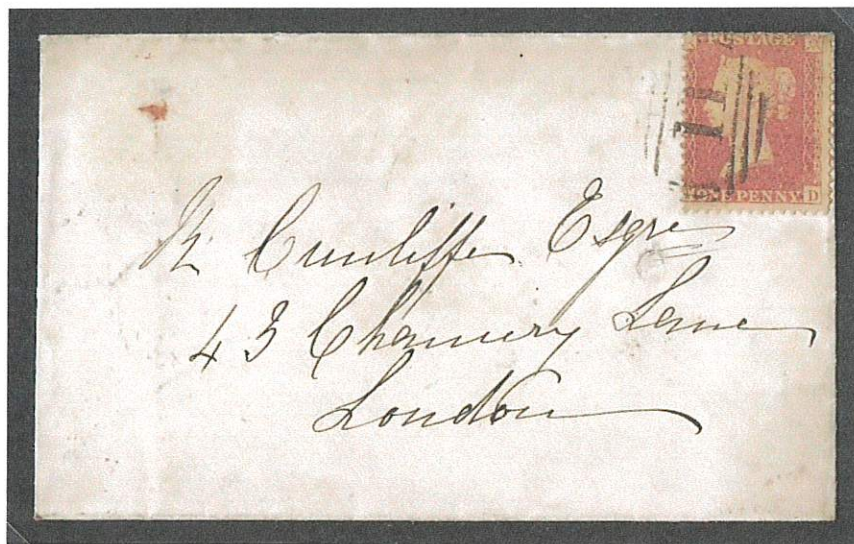 POSTAGE
11
ONE PENNY D
Cunliffe Esqre
43 Chancery Lane
London